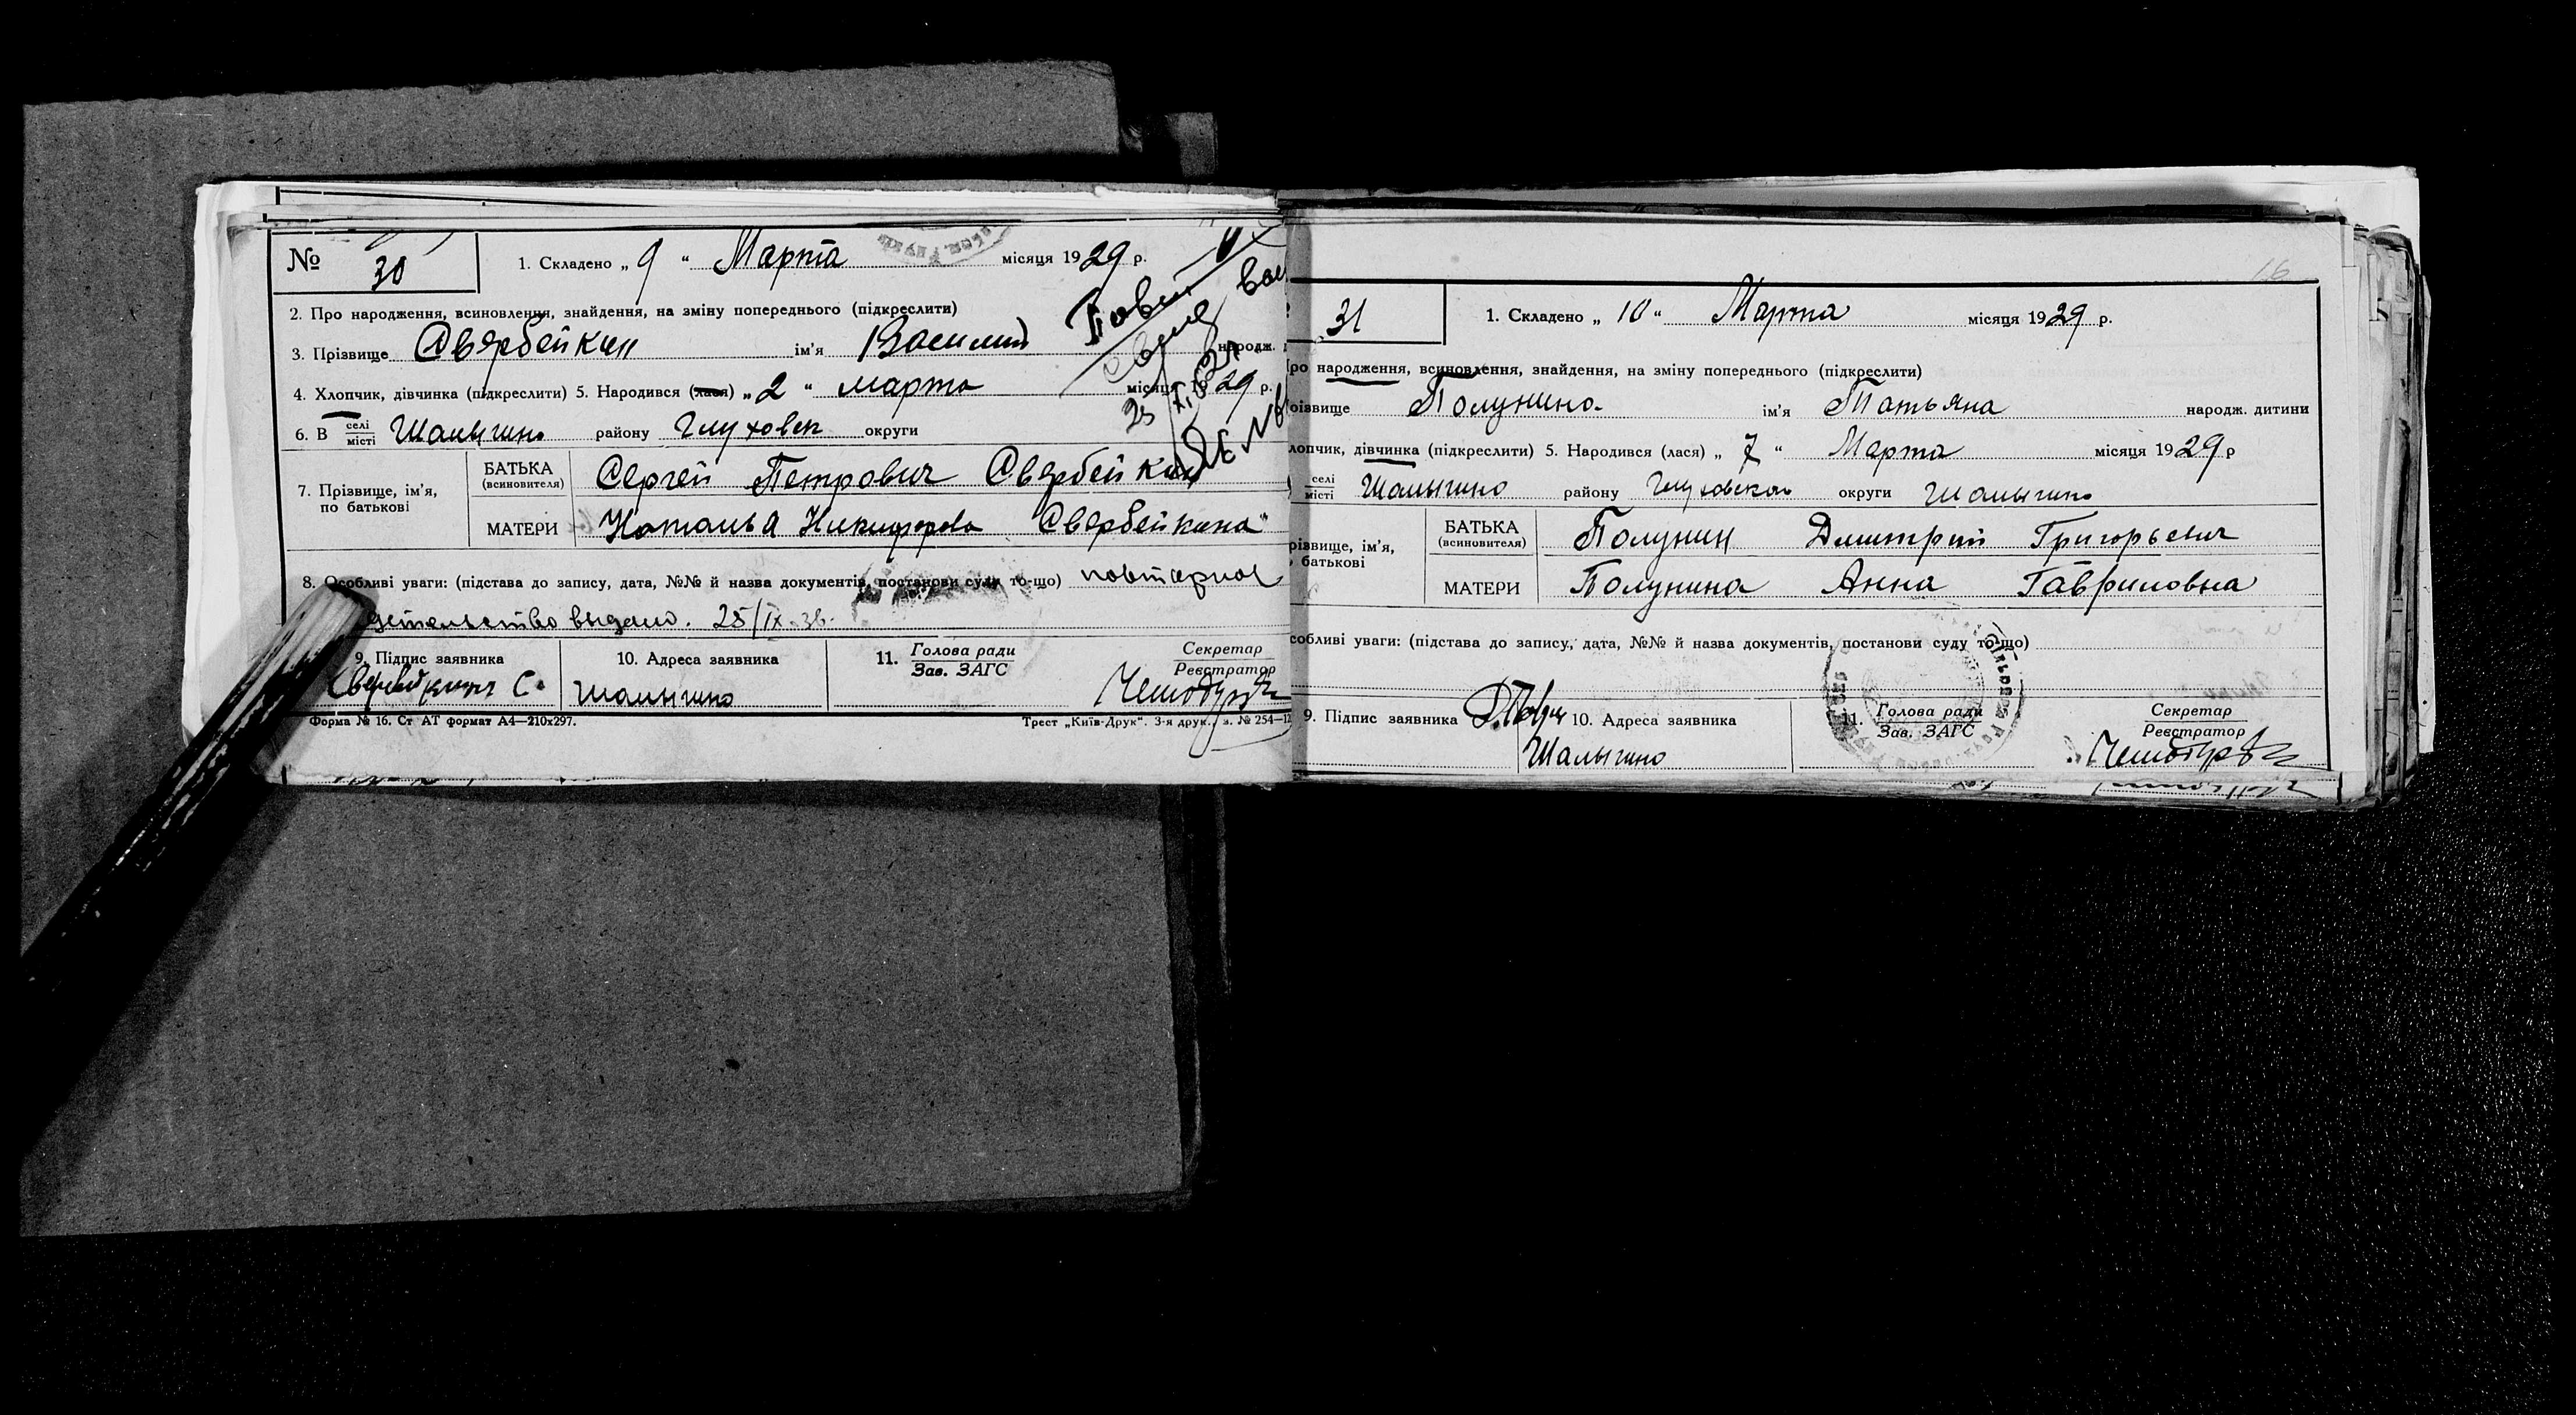 № 30
1. Складено „ 9 " Марта місяця 1929 р.
2. Про народження, всиновлення, знайдення, на зміну попереднього (підкреслити)
3. Прізвище Свербейкин ім'я Василий народж.
4. Хлопчик, дівчинка (підкреслити) 5. Народився (лася) „ 2 " марта місяця 1929 р.
6. В селі місті Шалыгино району Глуховск округи
7. Прізвище, ім'я, по батькові
БАТЬКА (всиновителя) Сергей Петрович Свербейкин
МАТЕРИ Наталья Никифорова Свербейкина
8. Особливі уваги: (підстава до запису, дата, №№ й назва документів, постанови суду то-що) повторное
детельство выдано. 25/IX 36.
9. Підпис заявника
Свербейкин С.
10. Адреса заявника
Шалыгино
11. Голова ради
Зав. ЗАГС
Секретар
Реєстратор
Форма № 16. Ст АТ формат А4—210х297.
Трест „Київ-Друк". 3-я друк., з. № 254—12
16
31
1. Складено „ 10 " Марта місяця 1929 р.
ро народження, всиновлення, знайдення, на зміну попереднього (підкреслити)
різвище Полунина ім'я Татьяна народж. дитини
лопчик, дівчинка (підкреслити) 5. Народився (лася) „ 7 " Марта місяця 1929 р
селі місті Шалыгино району Глуховском округи Шалыгино
різвище, ім'я, батькові
БАТЬКА (всиновителя) Полунин Дмитрий Григорьевич
МАТЕРИ Полунина Анна Гавриловна
собливі уваги: (підстава до запису, дата, №№ й назва документів, постанови суду то-що)
9. Підпис заявника
10. Адреса заявника
Шалыгино
11. Голова ради
Зав. ЗАГС
Секретар
Реєстратор